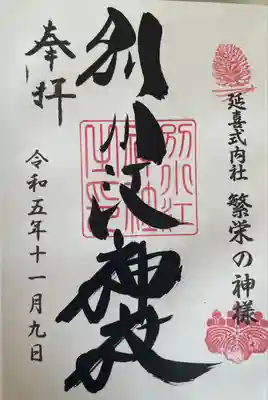 延喜式内社 繁栄の神様
別小江神社
別小江
神社
奉拝
令和五年十一月九日